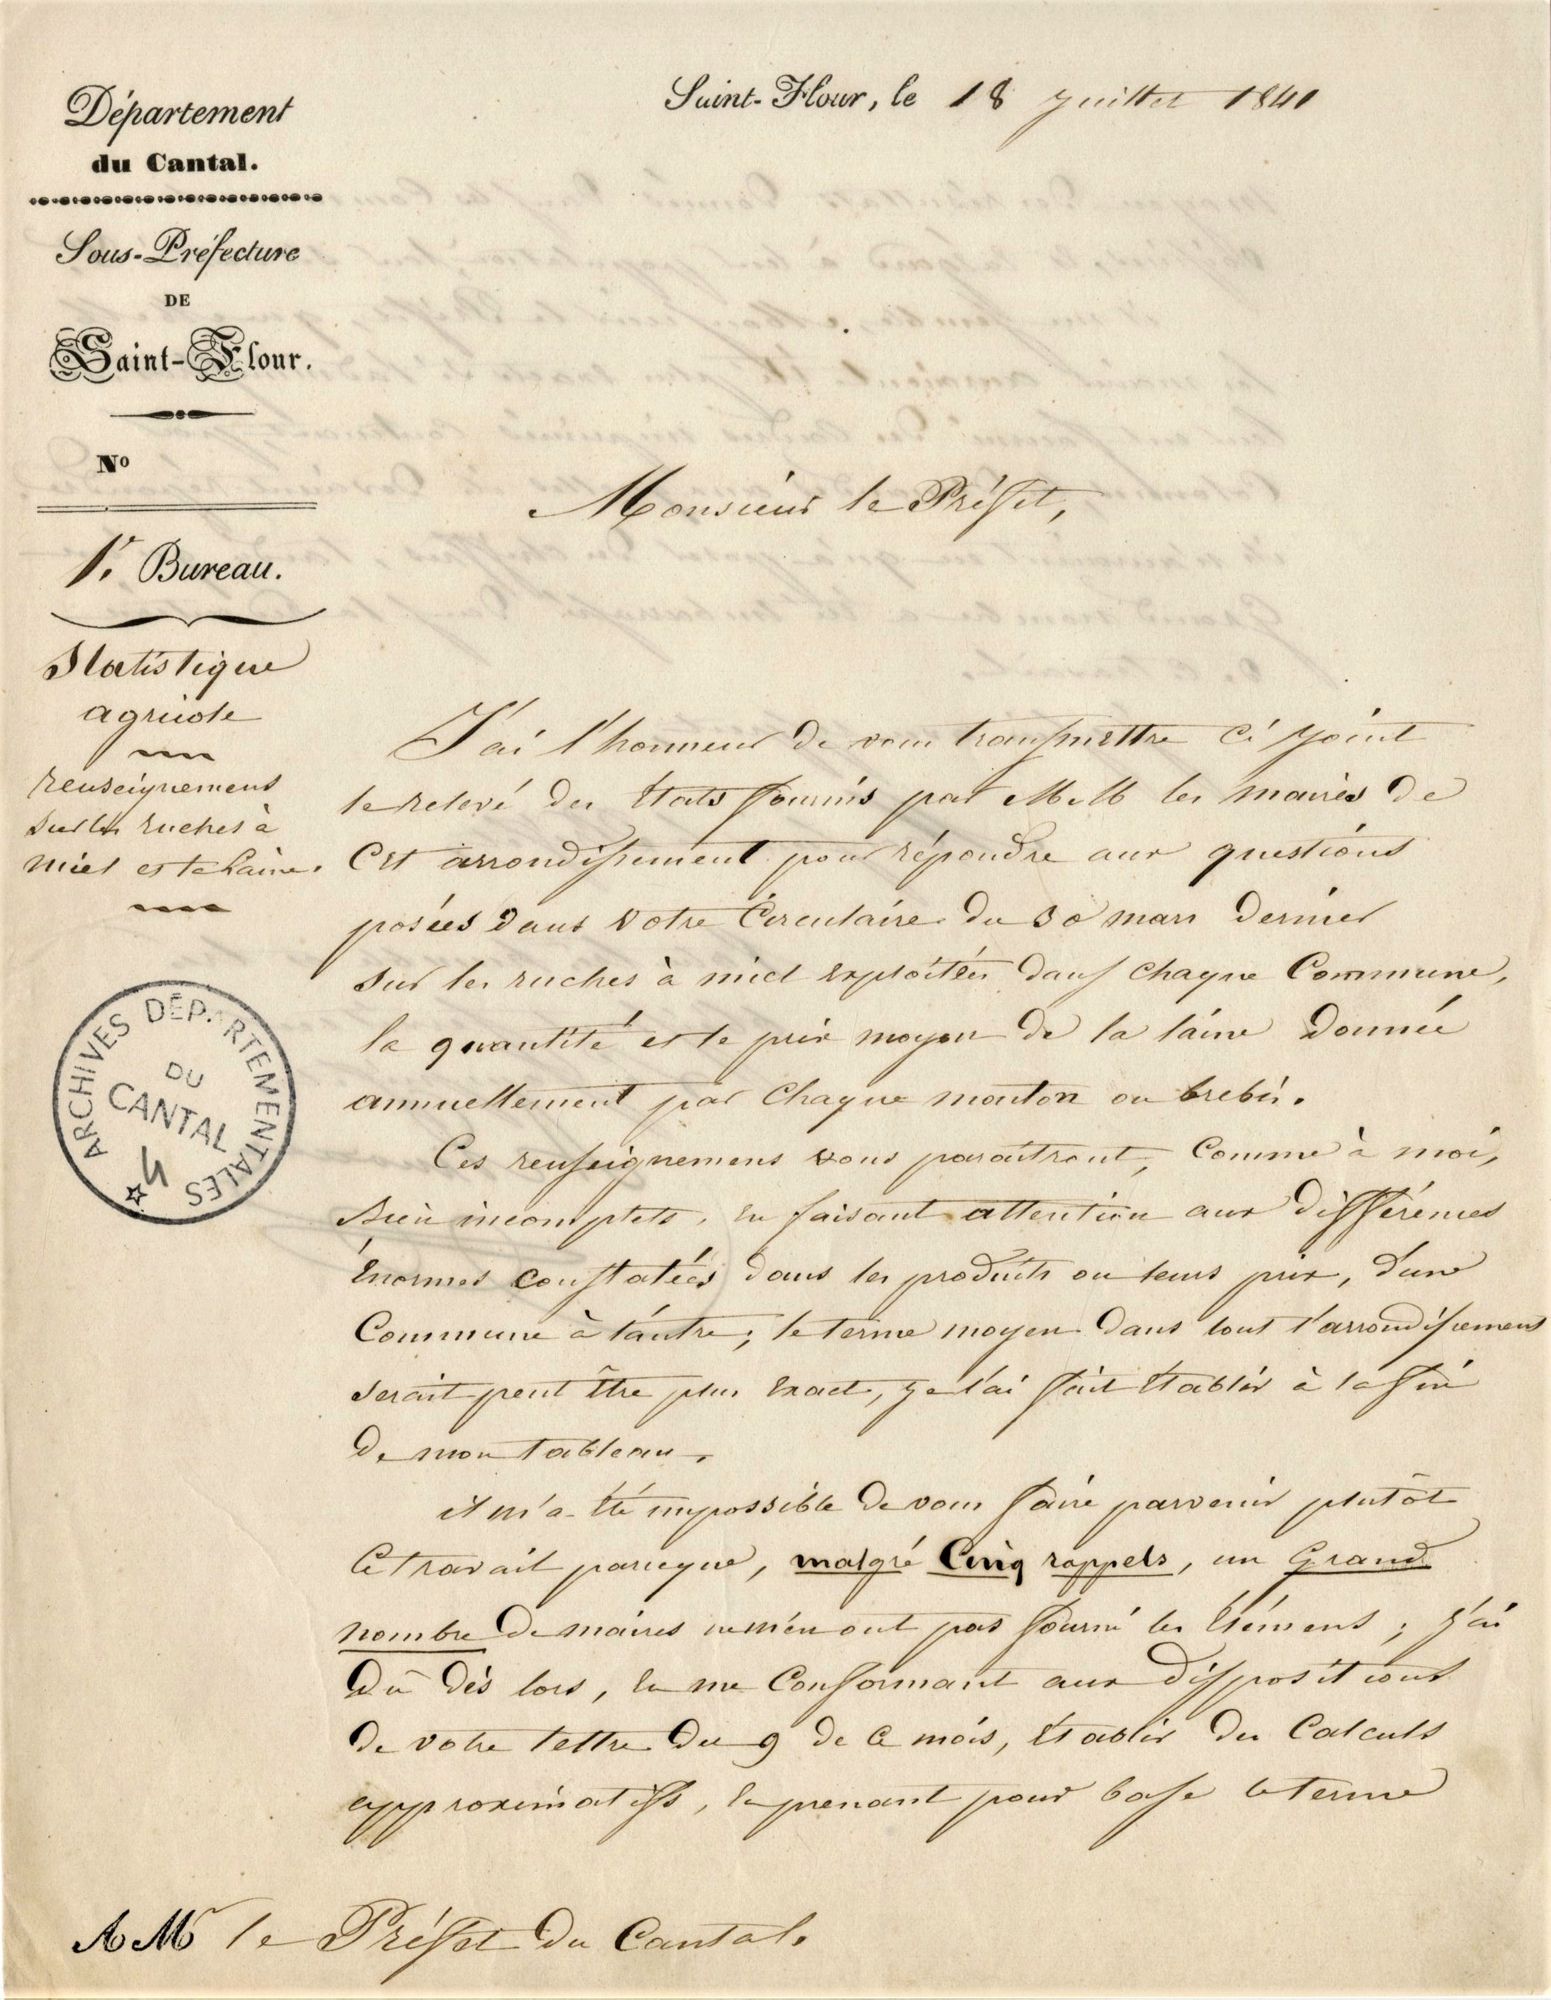 Département
du Cantal.
Sous-Préfecture
DE
Saint-Flour.
No
1r. Bureau.
Statistique
agricole
renseignemens
sur les ruches à
miel et la laine.
ARCHIVES DÉPARTEMENTALES
DU
CANTAL
Saint-Flour, le 18 juillet 1841
Monsieur le Préfet,
J'ai l'honneur de vous transmettre ci joint
le relevé des états fournis par M.M les maires de
cet arrondissement pour répondre aux questions
posées dans votre Circulaire du 30 mars dernier
sur les ruches à miel exploitées dans chaque Commune,
la quantité et le prix moyen de la laine donnée
annuellement par chaque mouton ou brebis.
Ces renseignemens vous paraitront, comme à moi,
bien incomplets, en faisant attention aux différences
énormes constatées dans les produits ou leurs prix, d'une
Commune à l'autre; le terme moyen dans tout l'arrondissement
serait peut être plus exact, je l'ai fait établir à la fin
de mon tableau.
il m'a été impossible de vous faire parvenir plutôt
ce travail parceque, malgré cinq rappels, un grand
nombre de maires ne m'en ont pas fourni les élémens; j'ai
dû dès lors, en me conformant aux dispositions
de votre lettre du 9 de ce mois, établir des calculs
approximatifs, en prenant pour base le terme
A Mr le Préfet du Cantal.